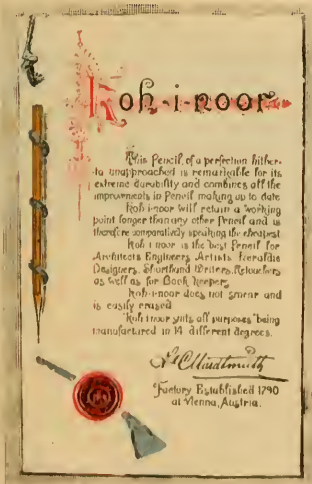 Koh-i-noor
This Pencil, of a perfection hither-
to unapproached is remarkable for its
extreme durability and combines all the
improvements in Pencil making up to date
Koh-i-noor will retain a working
point longer than any other Pencil and is
therefore comparatively speaking the cheapest.
Koh-i-noor is the best Pencil for
Architects Engineers Artists, Heraldic
Designers, Shorthand Writers, Retouchers
as well as for Book Keepers
Koh-i-noor does not smear and
is easily erased
Koh-i-noor suits all purposes being
manufactured in 14 different degrees.
L&C Hardtmuth
Factory Established 1790
at Vienna, Austria.